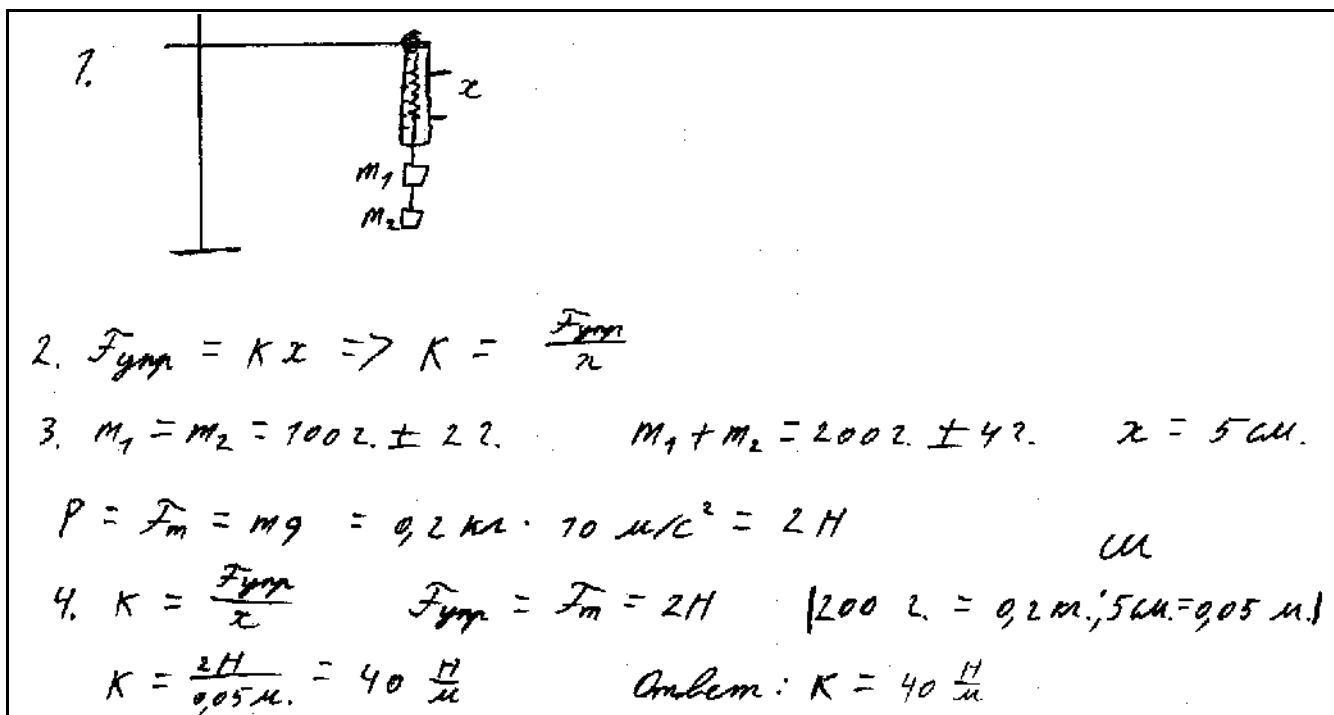 1.
x
m₁
m₂
2. Fупр = Kx => K = Fупр/x
3. m₁ = m₂ = 100 г. ± 2 г. m₁ + m₂ = 200 г. ± 4 г. x = 5 см.
P = Fт = mg = 0,2 кг · 10 м/с² = 2 Н
СИ
4. K = Fупр/x Fупр = Fт = 2Н |200 г. = 0,2 кг.; 5 см. = 0,05 м.|
K = 2Н/0,05 м. = 40 Н/м Ответ: K = 40 Н/м